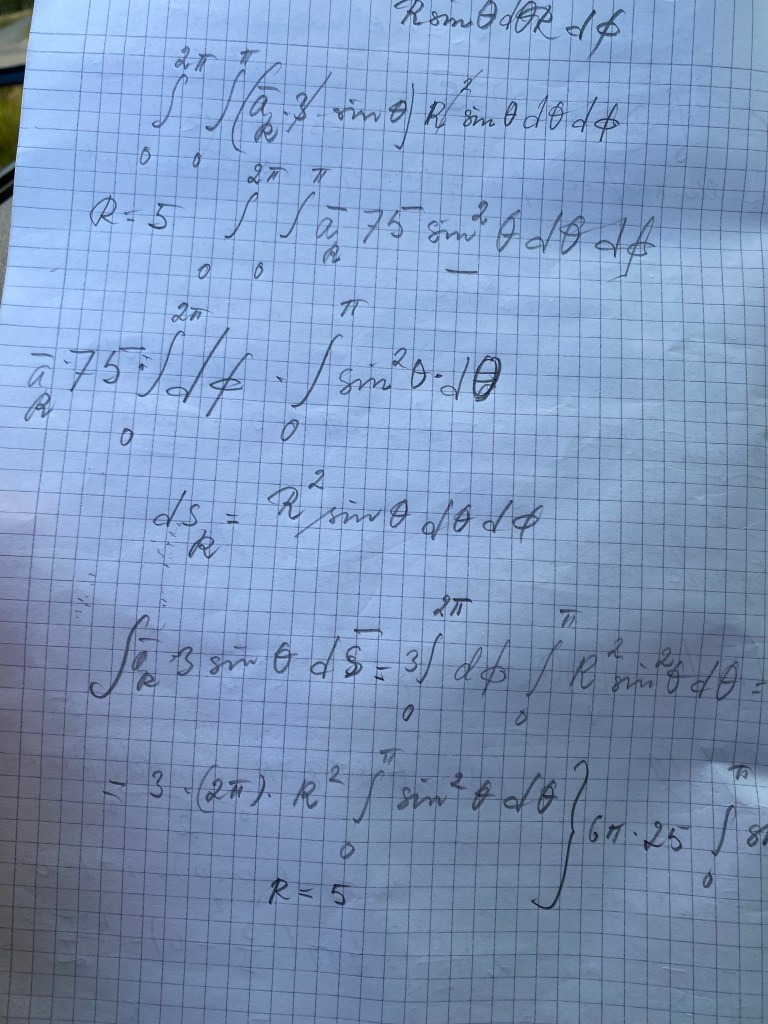 R sin θ dθ R dϕ
∫₀^{2π} ∫₀^{π} (a̅_R · 3 · sin θ) R² sin θ dθ dϕ
R = 5 ∫₀^{2π} ∫₀^{π} a̅_R 75 sin² θ dθ dϕ
a̅_R · 75 · ∫₀^{2π} dϕ · ∫₀^{π} sin² θ · dθ
ds_R = R² sin θ dθ dϕ
∫ a̅_R · 3 sin θ dS̅ = 3 ∫₀^{2π} dϕ ∫₀^{π} R² sin² θ dθ =
= 3 · (2π) · R² ∫₀^{π} sin² θ dθ } 6π · 25 ∫₀^{π}
R = 5